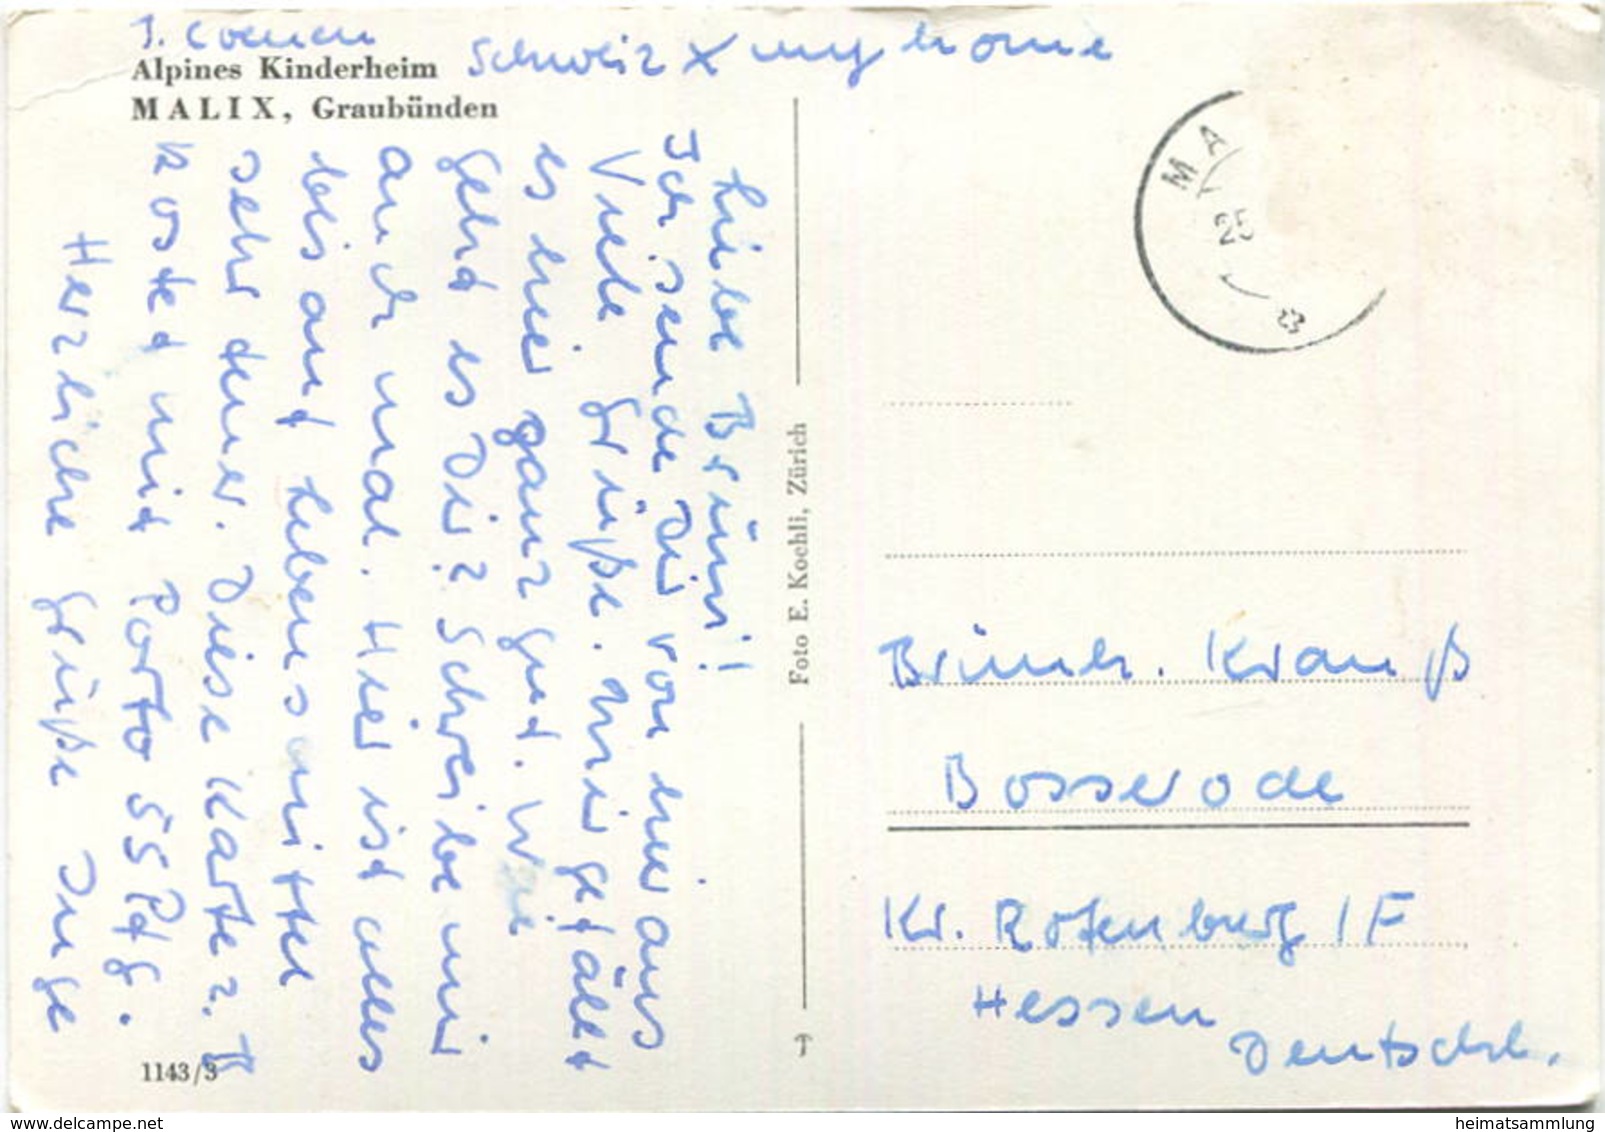 J. Coenen
Alpines Kinderheim
MALIX, Graubünden
Schweiz X my home
Liebe Brüni!
Ich sende Dir von hier aus
Viele Grüße. Mir gefällt
es hier ganz gut. Wie
geht es Dir? Schreibe mir
auch mal. Hier ist alles
bis auf Lebensmittel
sehr teuer. Diese Karte z. B
kostet mit Porto 55 Pfg.
Herzliche Grüße Inge
1143/3
Foto E. Kochli, Zürich
MA
25
Brünh. Krauß
Bosserode
Kr. Rotenburg / F
Hessen
Deutschl.
www.delcampe.net
heimatsammlung